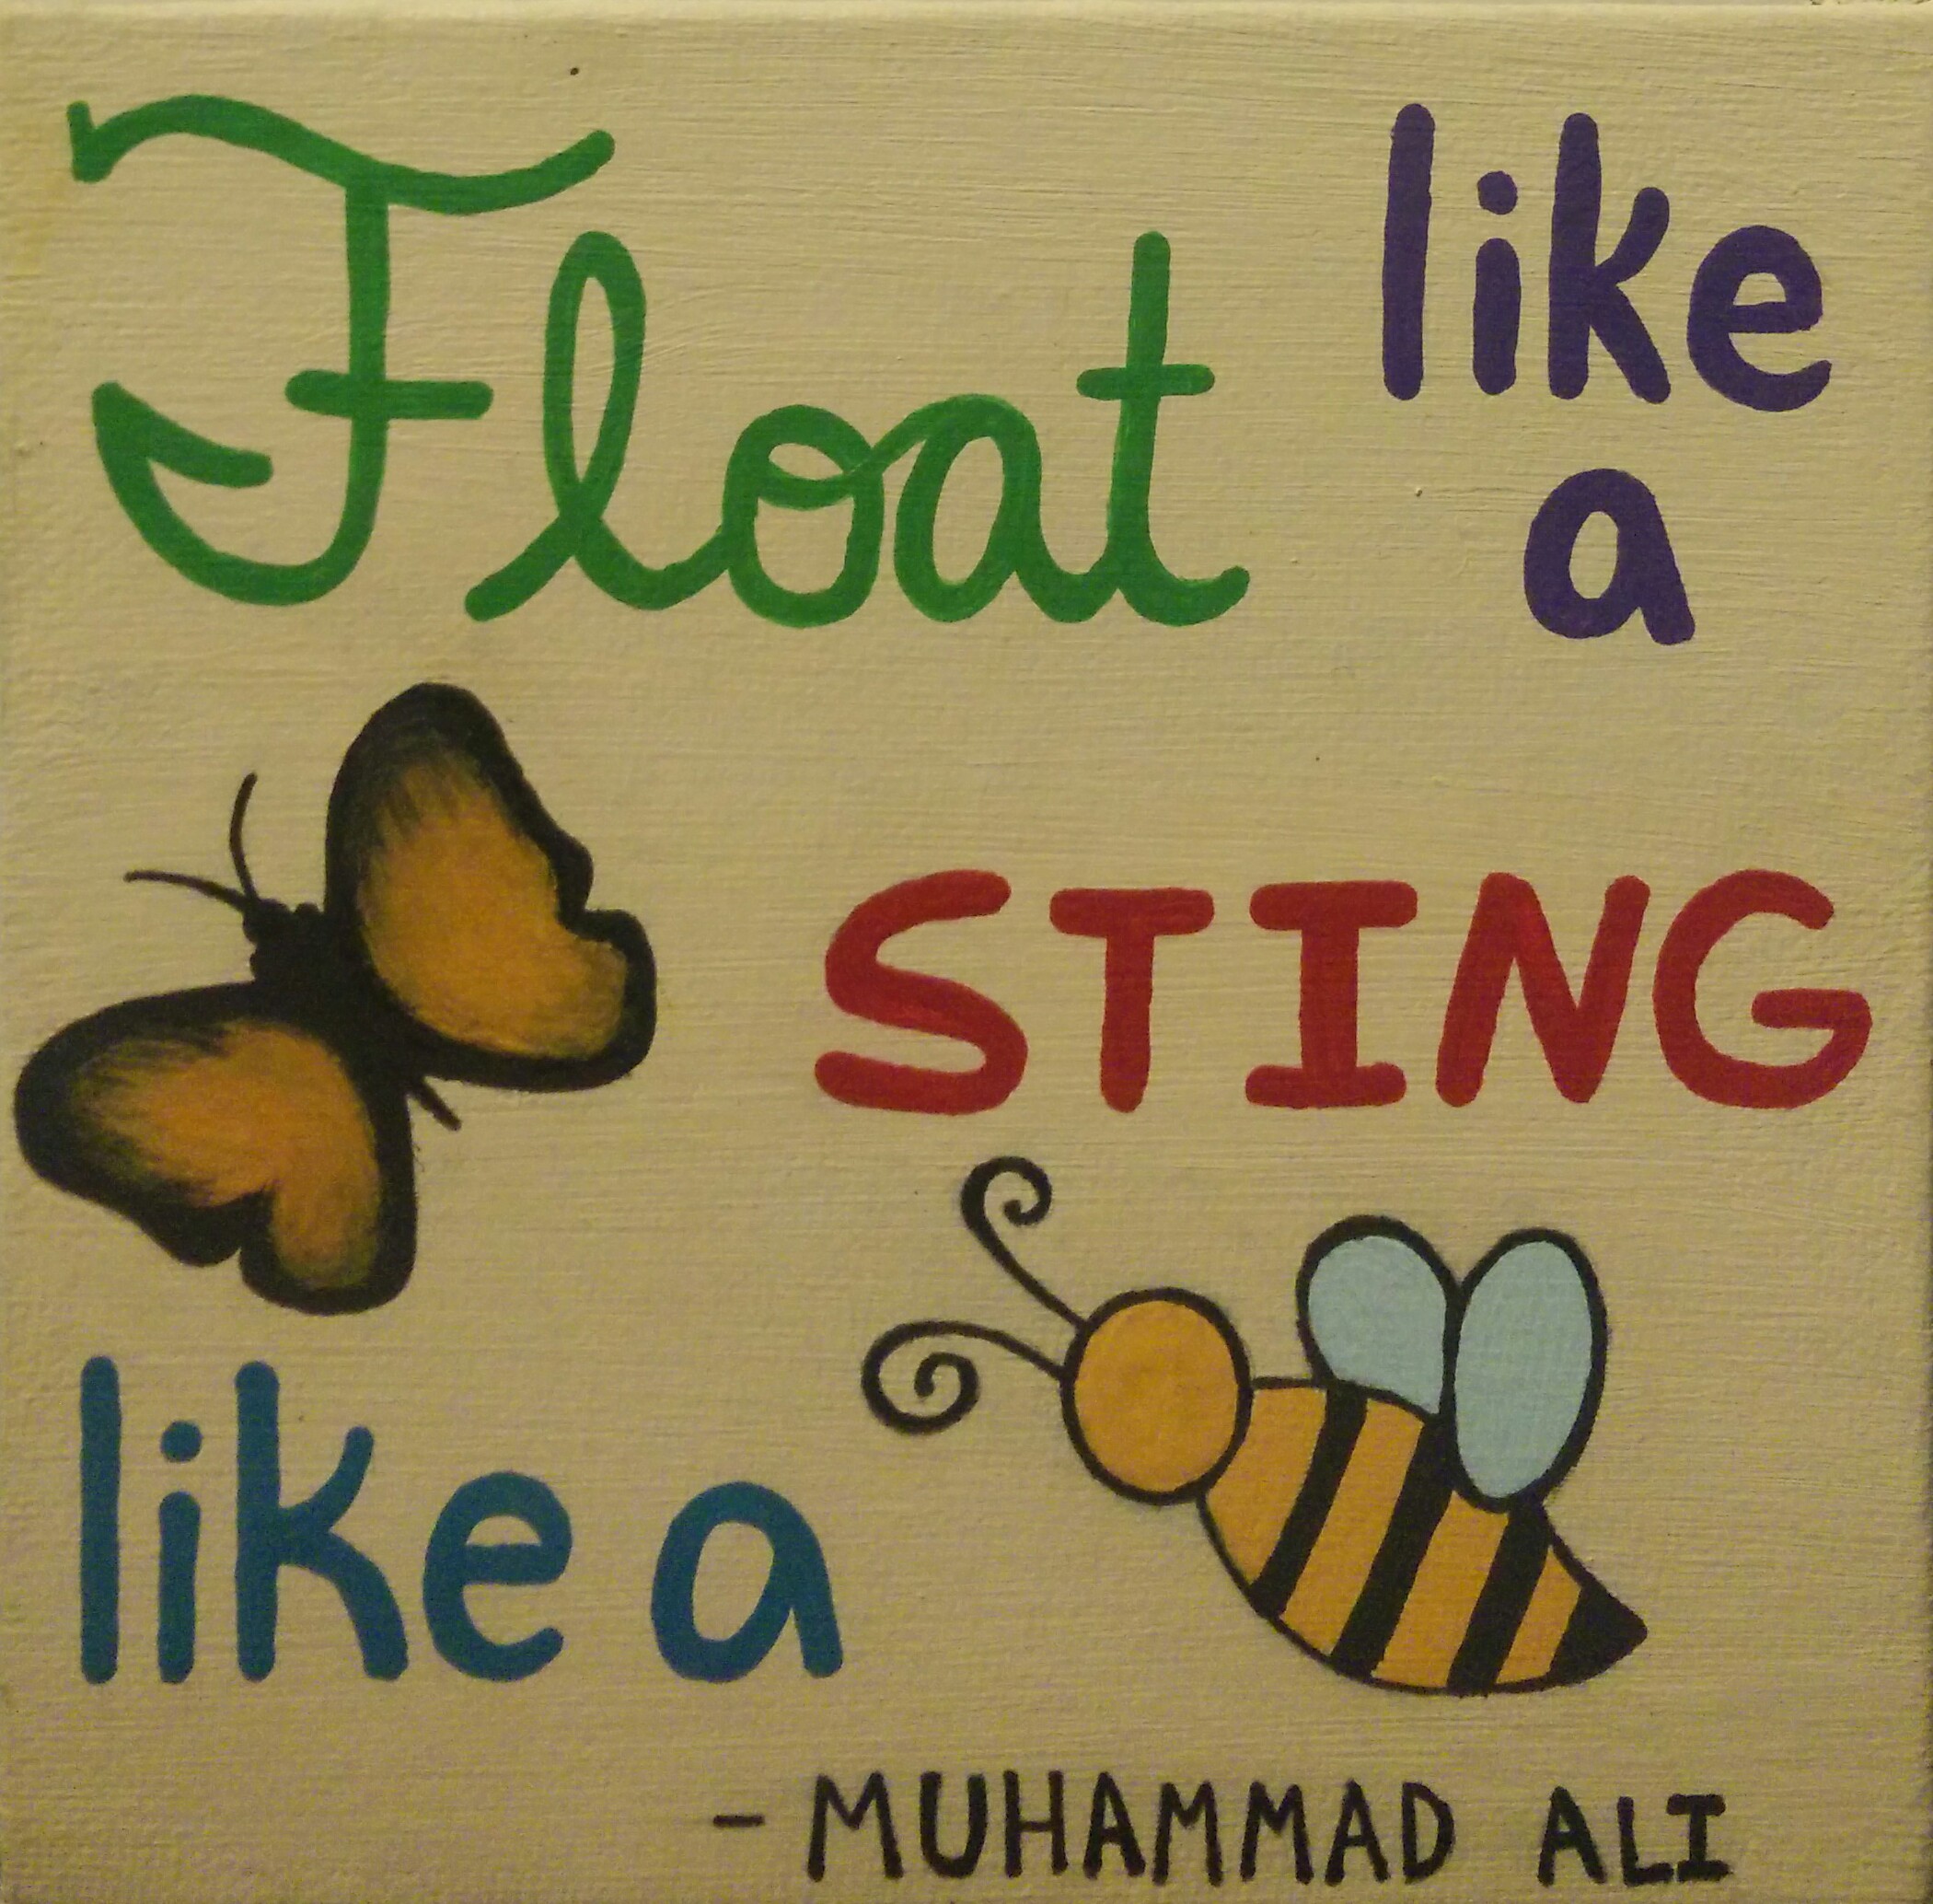 Float like
a
STING
like a
- MUHAMMAD ALI